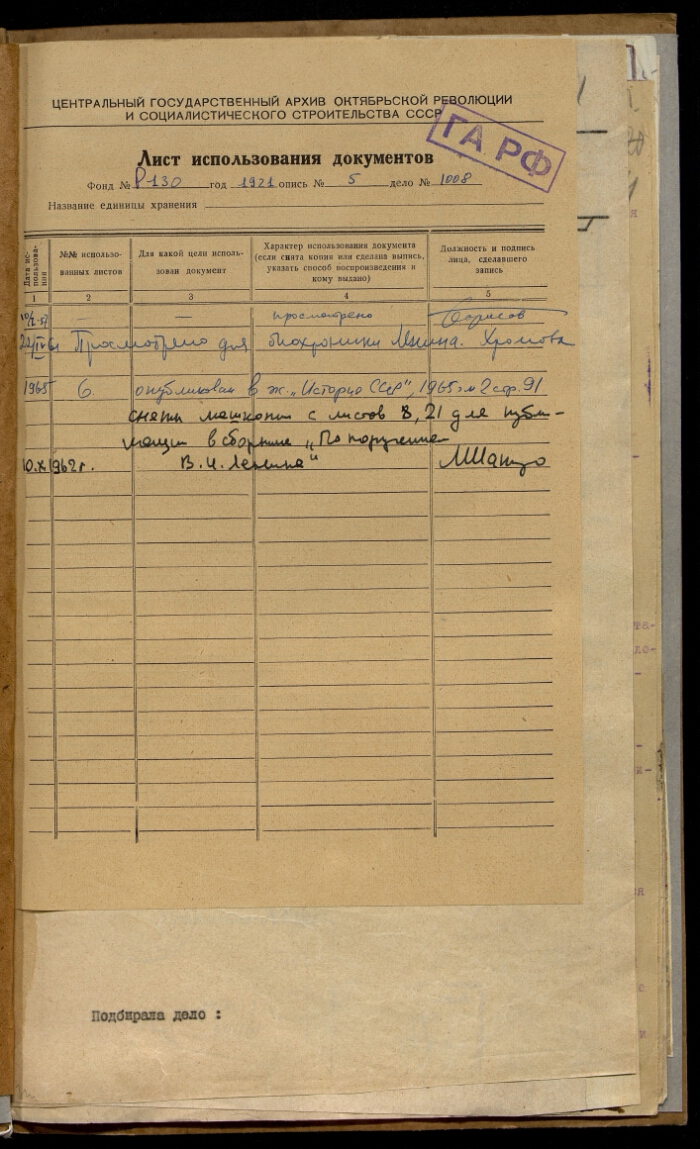 ЦЕНТРАЛЬНЫЙ ГОСУДАРСТВЕННЫЙ АРХИВ ОКТЯБРЬСКОЙ РЕВОЛЮЦИИ
И СОЦИАЛИСТИЧЕСКОГО СТРОИТЕЛЬСТВА СССР
ГА РФ
Лист использования документов
Фонд № Р130 год 1921 опись № 5 дело № 1008
Название единицы хранения
Дата использования
№№ использо-
ванных листов
Для какой цели исполь-
зован документ
Характер использования документа
(если снята копия или сделана выпись,
указать способ воспроизведения и
кому выдано)
Должность и подпись
лица, сделавшего
запись
1 2 3 4 5
— — просмотрено Борисов
Просмотрено для биохроники Ленина. Хромова
1965 6. опубликован в ж. „История СССР", 1965 № 2 стр. 91
сняты машкопии с листов 8, 21 для публи-
кации в сборнике „По поручению
10.X.1962 г. В. И. Ленина"
Подбирала дело :